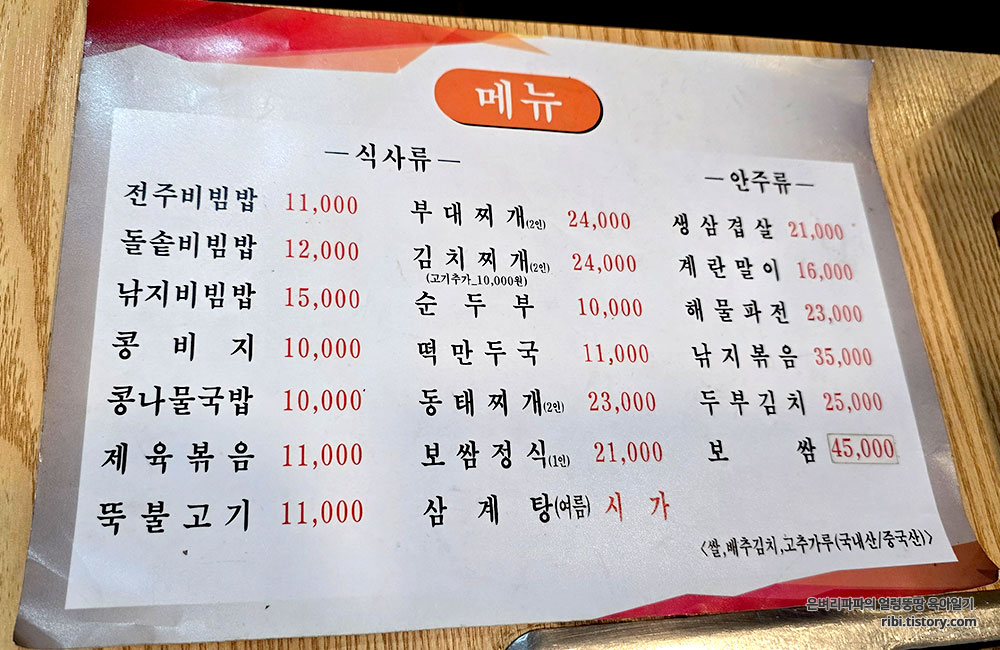 메뉴
―식사류―
전주비빔밥 11,000
돌솥비빔밥 12,000
낚지비빔밥 15,000
콩비지 10,000
콩나물국밥 10,000
제육볶음 11,000
뚝불고기 11,000
부대찌개(2인) 24,000
김치찌개(2인) 24,000
(고기추가_10,000원)
순두부 10,000
떡만두국 11,000
동태찌개(2인) 23,000
보쌈정식(1인) 21,000
삼계탕(여름) 시가
―안주류―
생삼겹살 21,000
계란말이 16,000
해물파전 23,000
낚지볶음 35,000
두부김치 25,000
보쌈 45,000
<쌀,배추김치,고추가루(국내산/중국산)>
은벼리파파의 얼렁뚱땅 육아일기
ribi.tistory.com